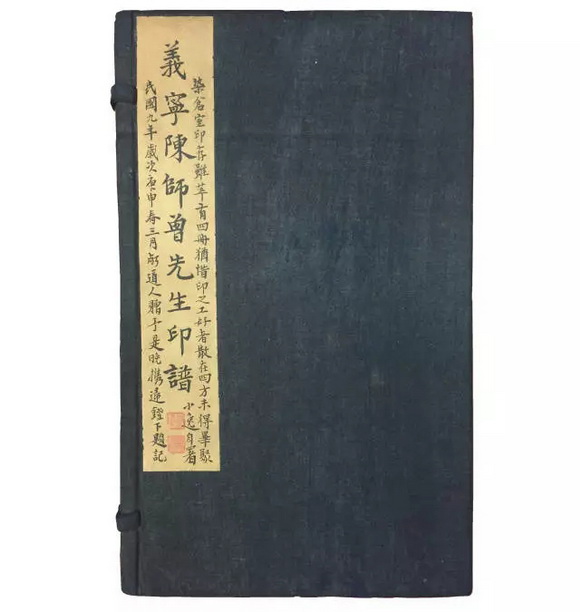 染倉室印存雖萃有四冊猶惜印之工好者散在四方未得畢聚
小逸自署
義寧陳師曾先生印譜
民國九年歲次庚申春三月
道人
于是晚携遠鐙下題記